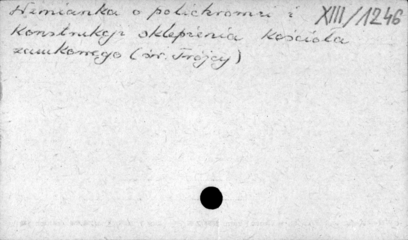 Wzmianka o polichromii i XIII/1246
Konstrukcji sklepienia Kościoła
zamkowego (św. Trójcy)